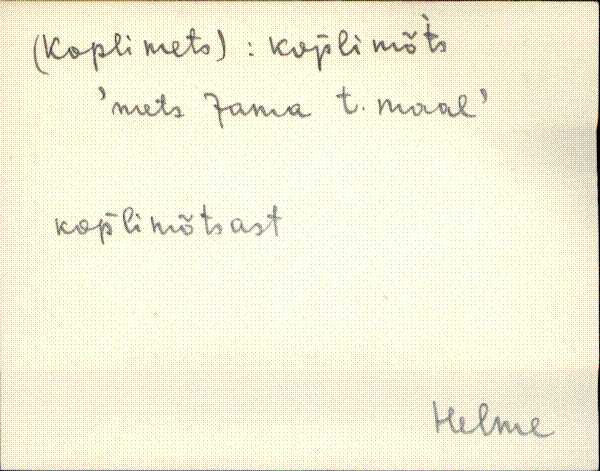 (Koplimets) : kop̄limõt̀s
'mets Jama t. maal'
kop̄limõtsast
Helme